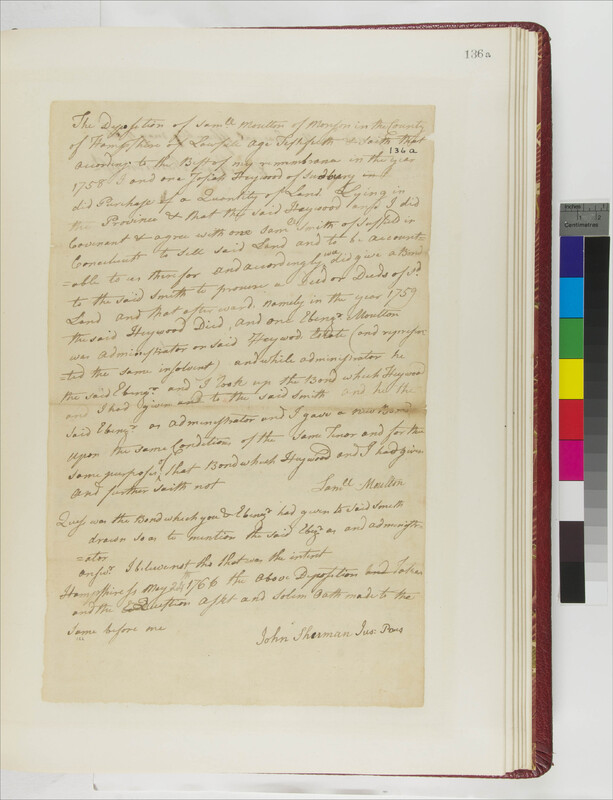 136a
The Deposition of Samll Moulton of Monson in the County
of Hampshire of Lawfull Age Testifieth & saith that
136a
According to the Best of my rememberance in the year
1758 I and one Josiah Heywood of Sudbury
did Purchase of a Quantity of Land Lying in
the Province & that the said Heywood and I did
Covenant & agree with one Saml Smith of Suffield in
Conecticutt to sell said Land and to be account-
=able to us therefor and accordingly we did give a Bond
to the said Smith to procure a Deed or Deeds of sd
Land and that afterward, namely in the year 1759
the said Heywood Died, and one Ebenzr Moulton
was Administrator on said Heywod Estate (and represen
ted the same insolvent) and while administrator he
the said Ebenzr and I Took up the Bond which Heywood
and I had given to the said Smith and he the
said Ebenzr as Administrator and I gave a new Bond
upon the same Condition of the same Tenor and for the
same purpose of that Bond which Heywood and I had given
And further saith not
Samll Moulton
Quest was the Bond which you & Ebenzr had given to said Smith
drawn so as to mention the said Ebzr as and administr-
=ator
answr. I beleive not tho that was the intent
Hampshire ss May 24th 1766 the above Deposition Taken
and the Question Askt and Solem Oath made to the
same before me
John Sherman Jus Pacs
inches
Centimetres